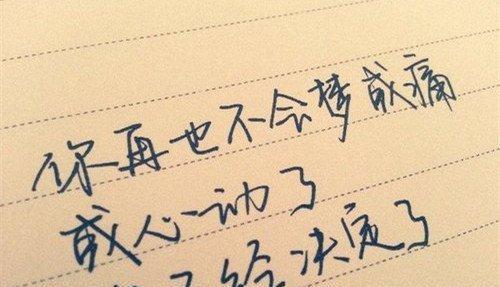 你再也不会梦或痛
或心动了
已经决定了